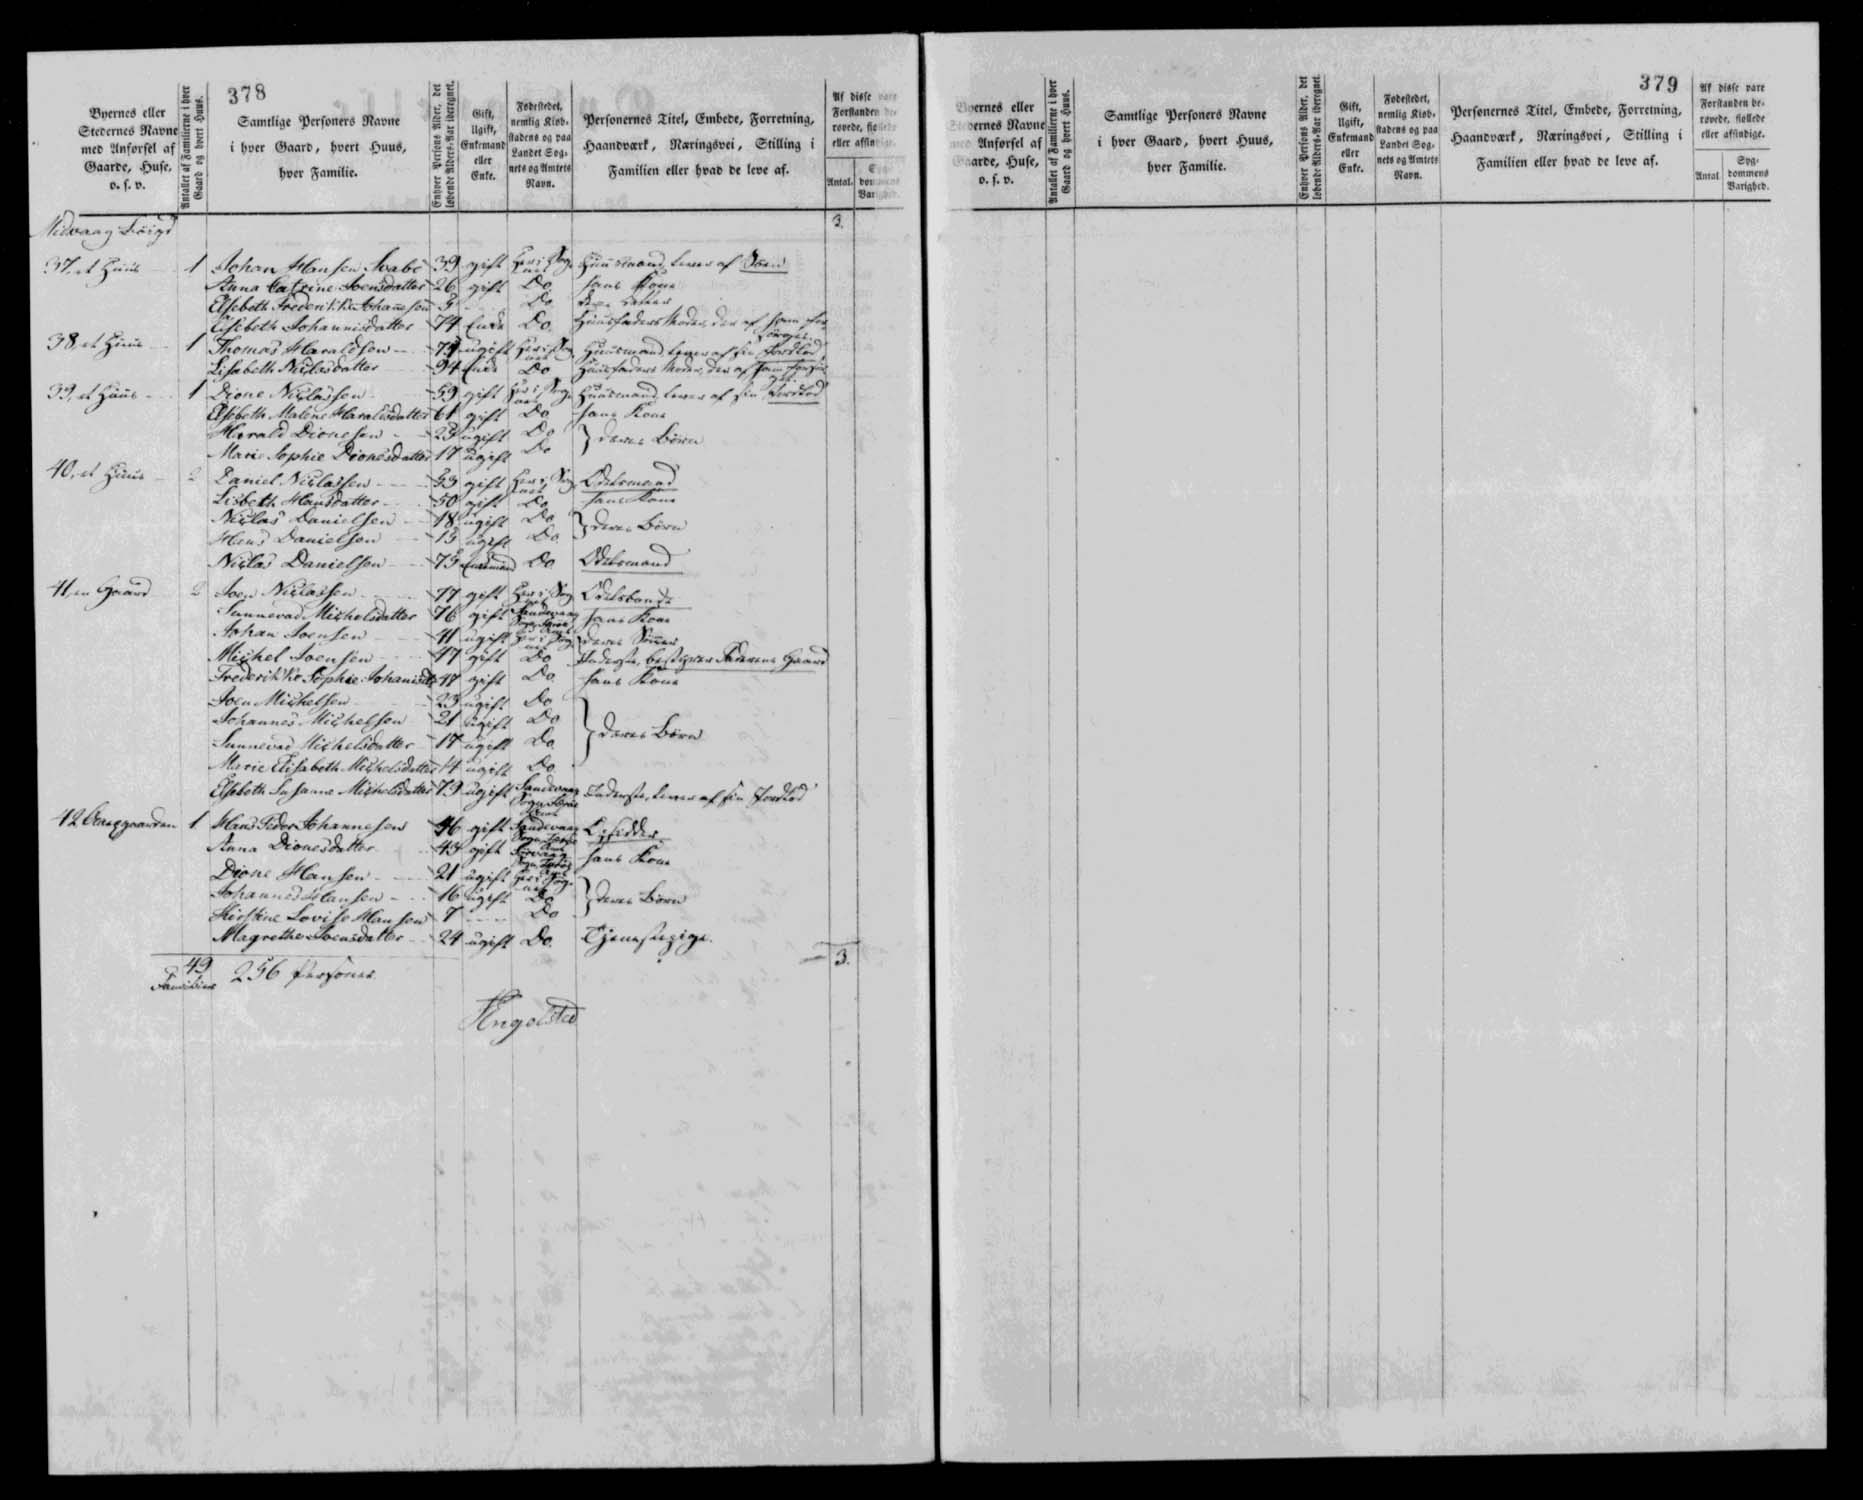 378
Byernes eller Stedernes Navne med Anførsel af Gaarde, Huse, o. s. v.
Antallet af Familierne i hver Gaard og hvert Huus.
Samtlige Personers Navne i hver Gaard, hvert Huus, hver Familie.
Enhver Persons Alder, det løbende Alders-Aar iberegnet.
Gift, Ugift, Enkemand eller Enke.
Fødestedet, nemlig Kiøbstadens og paa Landet Sognets og Amtets Navn.
Personernes Titel, Embede, Forretning, Haandværk, Næringsvei, Stilling i Familien eller hvad de leve af.
Af disse vare Forstanden berøvede,
eller
Antal.
Midvaag Bÿigd 3.
37, et Huus 1 Johan Hansen Svabo 39 gift Her i Sognet Huusmand, lever af
Anna Catrine Joensdatter 26 gift Do hans Kone
Elsebeth Frederikke Johannesen 5 Do deres Datter
Elsebeth Johannisdatter 74 Enke Do. Huusfaders Moder, der af ham forsørges
38, et Huus 1 Thomas Haraldsen 73 ugift Her i Sognet Huusmand, lever af sin Jordlod
Lisabeth Niclasdatter 94 Enke Do Huusfaders Moder, der af ham forsørges
39, et Huus 1 Dione Niclassen 59 gift Her i Sognet Huusmand, lever af sin Jordlod
Elsebeth Malene Haraldsdatter 61 gift Do hans Kone
Harald Dionesen 23 ugift Do } deres Børn
Marie Sophie Dionesdatter 17 ugift Do
40, et Huus 2 Daniel Niclassen 53 gift Her i Sognet Odelsmand
Lisbeth Hansdatter 50 gift Do hans Kone
Niclas Danielsen 18 ugift Do } deres Børn
Hans Danielsen 15 ugift Do.
Niclas Danielsen 75 Enkemand Do. Odelsmand
41, en Gaard 2 Joen Niclassen 77 gift Her i Sognet Odelsbonde
Sunnevad Michelsdatter 76 gift Sandevaag Sogn hans Kone
Johan Joensen 41 ugift Her i Sognet deres Sønner
Michel Joensen 47 gift Do Inderste, bestyrer Faderens Gaard
Frederikke Sophie Johanisdtr 47 gift Do. hans Kone
Joen Michelsen 23 ugift Do
Johannes Michelsen 21 ugift Do } deres Børn
Sunnevad Michelsdatter 17 ugift Do.
Marie Elisabeth Michelsdatter 14 ugift Do.
Elsebeth Susanne Michelsdatter 79 ugift Sandevaag Sogn Inderste, lever af sin Jordlod
42 1 Hans Peder Johannesen 46 gift Sandevaag Sogn
Anna Dionesdatter 45 gift Sogn hans Kone
Dione Hansen 21 ugift Her i Sognet
Johannes Hansen 16 ugift Do } deres Børn
Kirstine Lovise Hansen 7 Do
Magrethe Joensdatter 24 ugift Do. Tjenestepige.
49 Familier 256 Personer. 3.
379
Byernes eller Stedernes Navne med Anførsel af Gaarde, Huse, o. s. v.
Antallet af Familierne i hver Gaard og hvert Huus.
Samtlige Personers Navne i hver Gaard, hvert Huus, hver Familie.
Enhver Persons Alder, det løbende Alders-Aar iberegnet.
Gift, Ugift, Enkemand eller Enke.
Fødestedet, nemlig Kiøbstadens og paa Landet Sognets og Amtets Navn.
Personernes Titel, Embede, Forretning, Haandværk, Næringsvei, Stilling i Familien eller hvad de leve af.
Af disse vare Forstanden berøvede, fiollede eller afsindige.
Antal
Sygdommens Varighed.